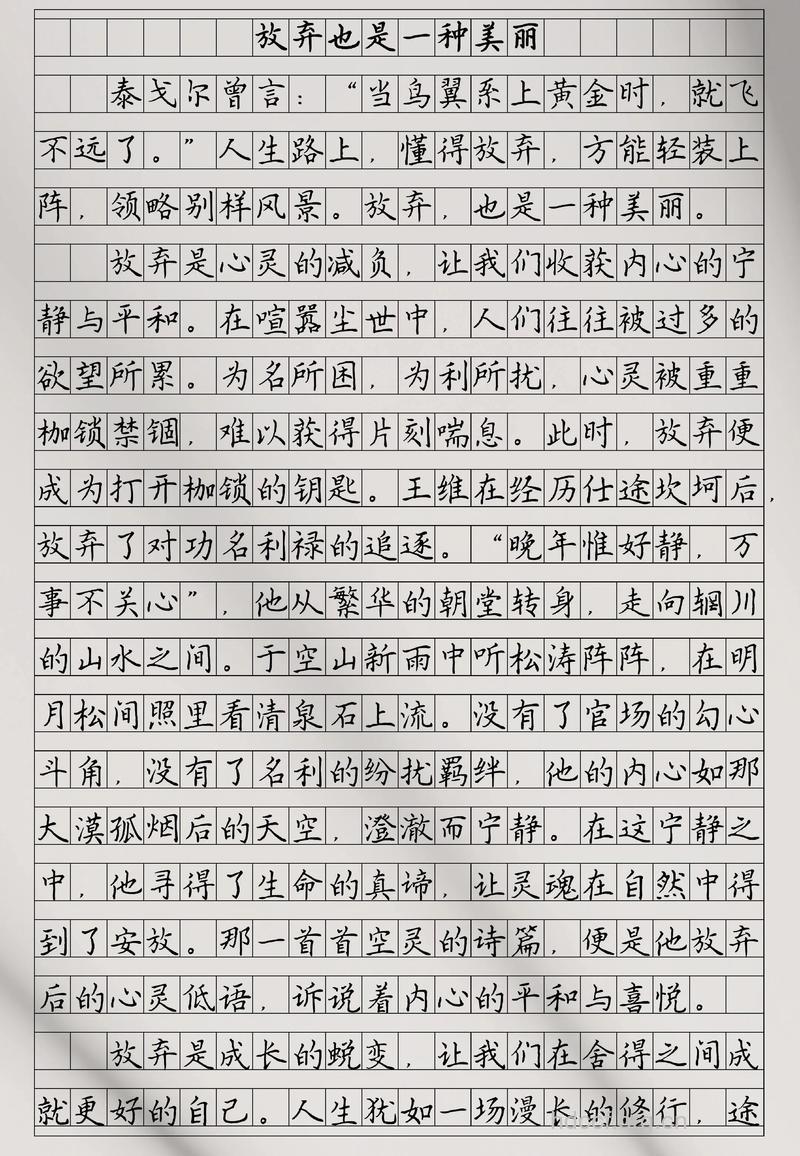 放弃也是一种美丽
泰戈尔曾言：“当鸟翼系上黄金时，就飞
不远了。”人生路上，懂得放弃，方能轻装上
阵，领略别样风景。放弃，也是一种美丽。
放弃是心灵的减负，让我们收获内心的宁
静与平和。在喧嚣尘世中，人们往往被过多的
欲望所累。为名所困，为利所扰，心灵被重重
枷锁禁锢，难以获得片刻喘息。此时，放弃便
成为打开枷锁的钥匙。王维在经历仕途坎坷后，
放弃了对功名利禄的追逐。“晚年惟好静，万
事不关心”，他从繁华的朝堂转身，走向辋川
的山水之间。于空山新雨中听松涛阵阵，在明
月松间照里看清泉石上流。没有了官场的勾心
斗角，没有了名利的纷扰羁绊，他的内心如那
大漠孤烟后的天空，澄澈而宁静。在这宁静之
中，他寻得了生命的真谛，让灵魂在自然中得
到了安放。那一首首空灵的诗篇，便是他放弃
后的心灵低语，诉说着内心的平和与喜悦。
放弃是成长的蜕变，让我们在舍得之间成
就更好的自己。人生犹如一场漫长的修行，途